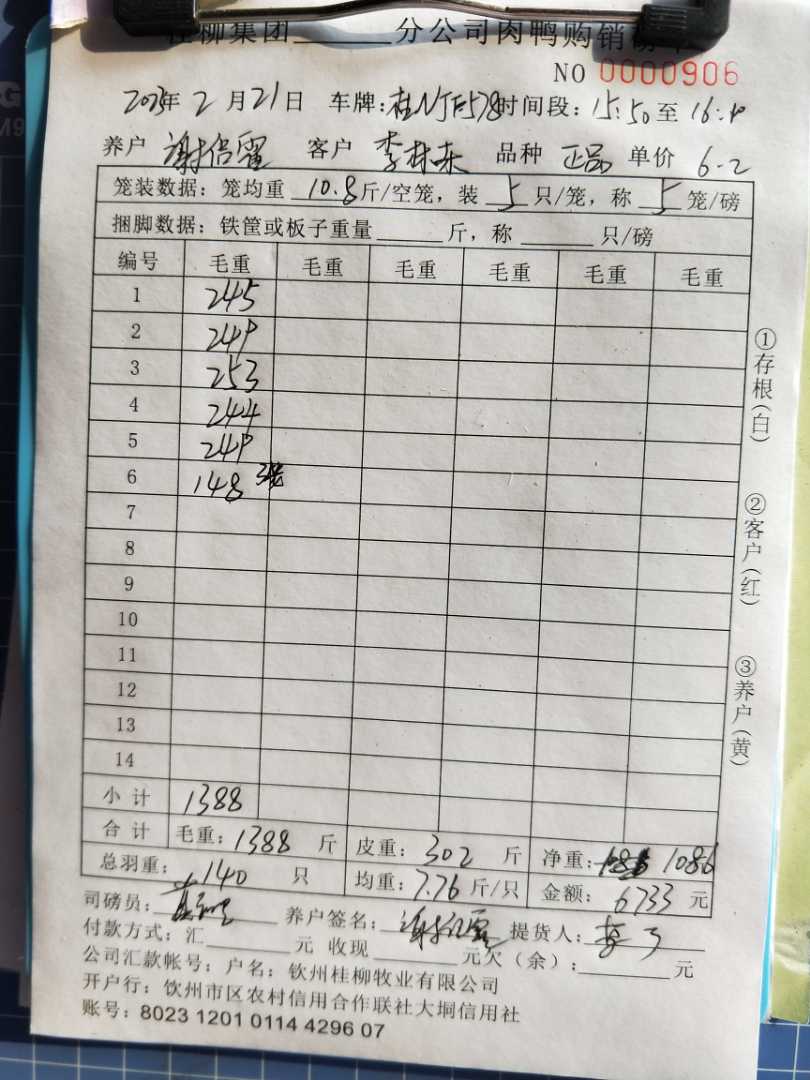 桂柳集团______分公司肉鸭购销磅单
NO 0000906
2023年 2 月 21 日 车牌: 桂NJF578 时间段: 15:50 至 16:
养户 谢 客户 李 品种 正品 单价 6.2
笼装数据: 笼均重 10.8 斤/空笼, 装 5 只/笼, 称 5 笼/磅
捆脚数据: 铁筐或板子重量______斤, 称______只/磅
编号 毛重 毛重 毛重 毛重 毛重 毛重
1 245
2 249
3 253
4 244
5 249
6 148 3笼
7
8
9
10
11
12
13
14
小 计 1388
合 计 毛重: 1388 斤 皮重: 302 斤 净重: 1086
总羽重: 140 只 均重: 7.76 斤/只 金额: 6733 元
司磅员: 养户签名: 谢 提货人: 李
付款方式: 汇______元 收现______元欠(余): ______元
公司汇款帐号: 户名: 钦州桂柳牧业有限公司
开户行: 钦州市区农村信用合作联社大垌信用社
账号: 8023 1201 0114 4296 07
①存根(白)
②客户(红)
③养户(黄)